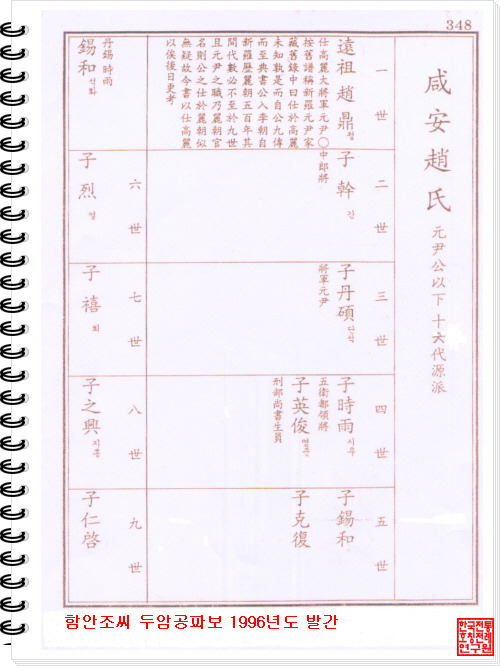 348
咸安趙氏
元尹公以下十六代源派
一世
遠祖趙鼎 정
仕高麗大將軍元尹○
按舊譜稱新羅元尹家
藏舊錄中曰仕於高麗
未知孰是而自公九傳
而至典書公入李朝自
新羅歷麗朝五百年其
間代數必不至於九世
且元尹之職乃麗朝官
名則公之仕於麗朝似
無疑故今書以仕高麗
以俟後日更考
二世
子幹 간
中郎將
三世
子丹碩 단석
將軍元尹
四世
子時雨 시우
五衛都領將
子英俊 영준
刑部尚書生員
五世
子錫和
子克復
丹錫 時雨
錫和 석화
六世
子烈 열
七世
子禧 희
八世
子之興 지흥
九世
子仁啓
함안조씨 두암공파보 1996년도 발간
한국전통
호칭전례
연구원